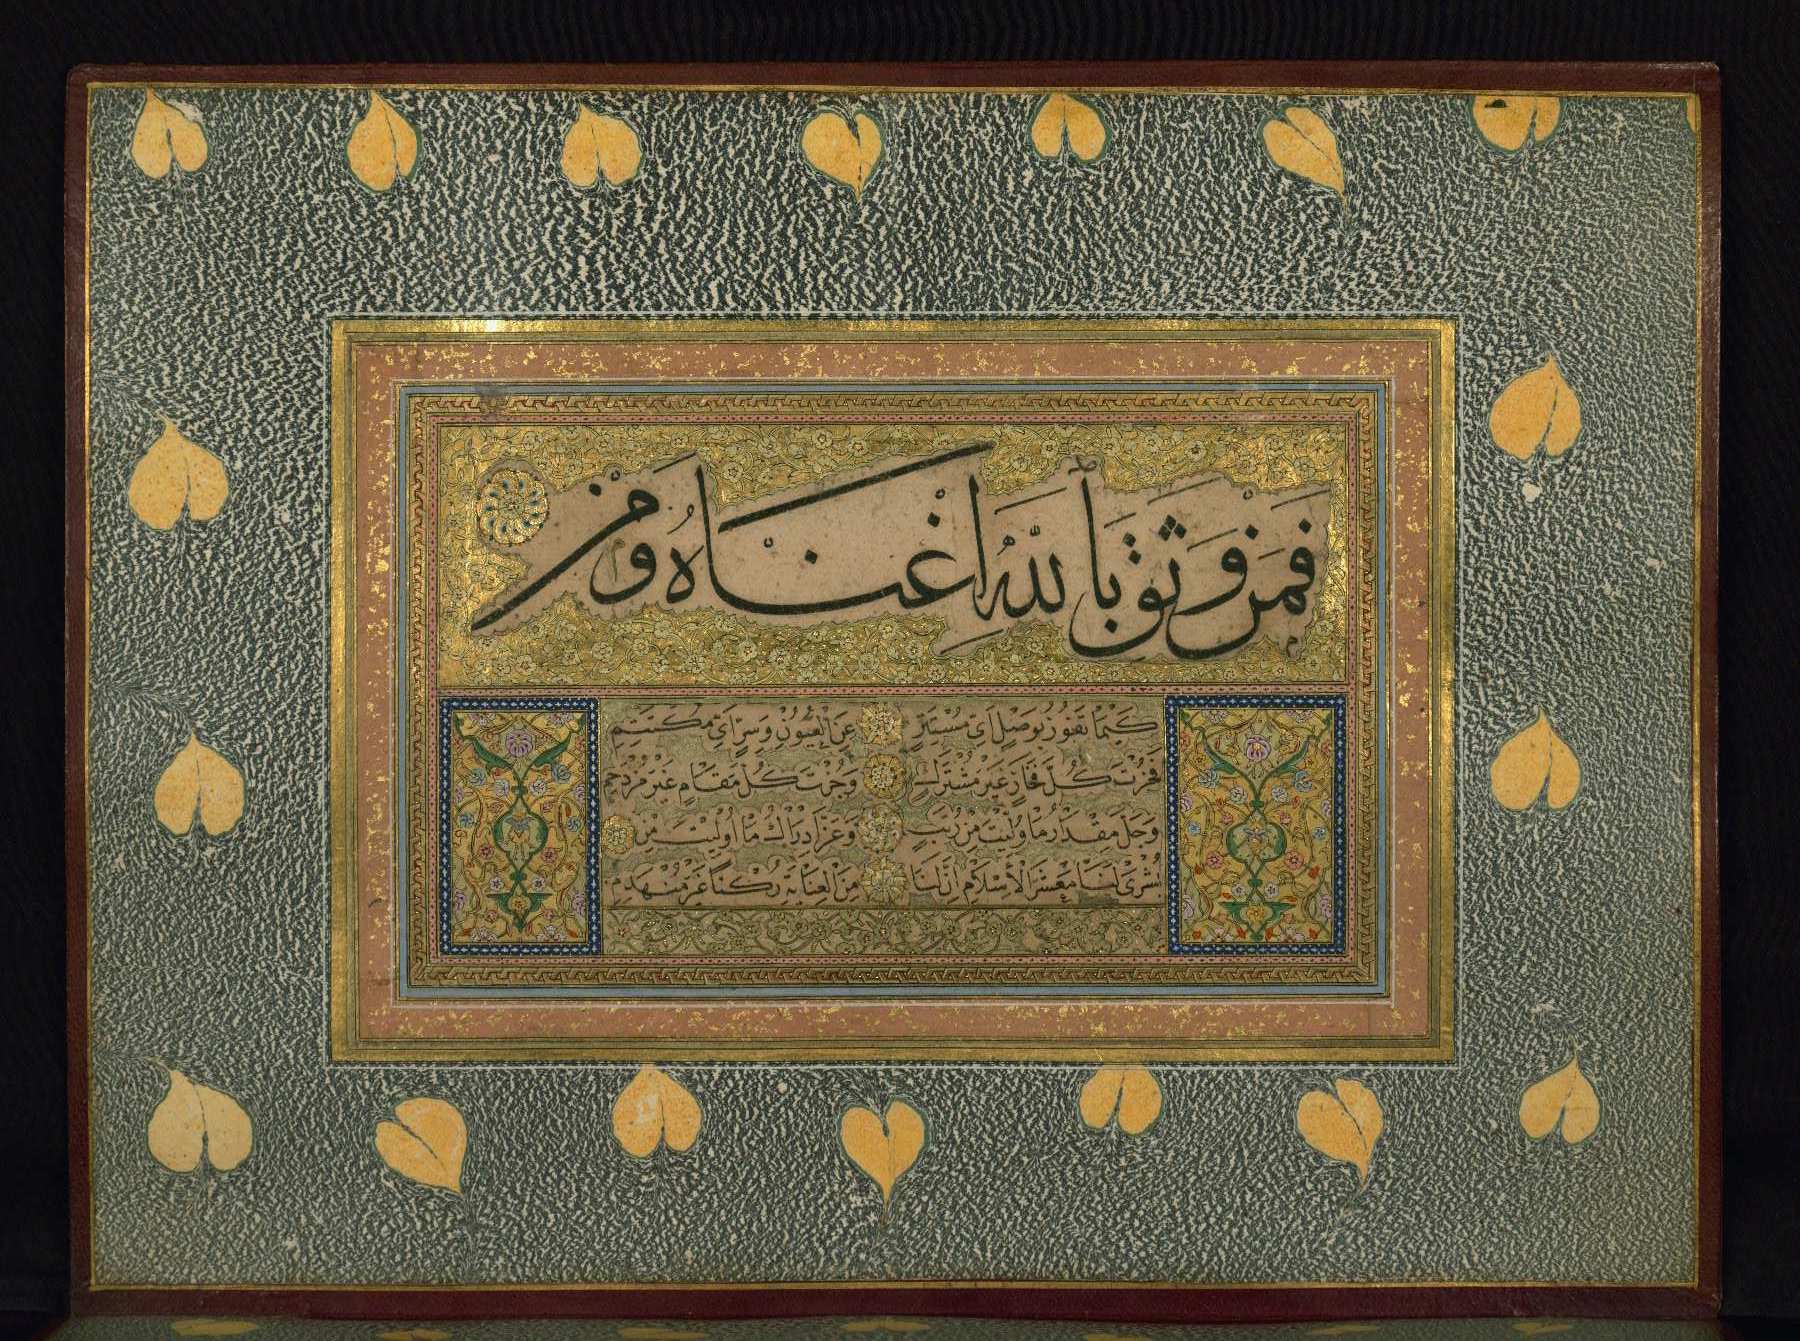 فَمَنْ وَثِقَ بِاللّٰهِ اَغْنَاهُ وَمَنْ
كَيْمَا تَفُوزَ بِوَصْلٍ اَيِّ مُسْتَتِرٍ عَنِ الْعُيُونِ وَسِرٍّ اَيِّ مُكْتَتِمِ
فَحُزْتَ كُلَّ فَخَارٍ غَيْرَ مُشْتَرَكٍ وَجُزْتَ كُلَّ مَقَامٍ غَيْرَ مُزْدَحِمِ
وَجَلَّ مِقْدَارُ مَا وُلِّيتَ مِنْ رُتَبٍ وَعَزَّ اِدْرَاكُ مَا اُولِيتَ مِنْ
بُشْرٰى لَنَا مَعْشَرَ الْاِسْلَامِ اِنَّ لَنَا مِنَ الْعِنَايَةِ رُكْنًا غَيْرَ مُنْهَدِمِ